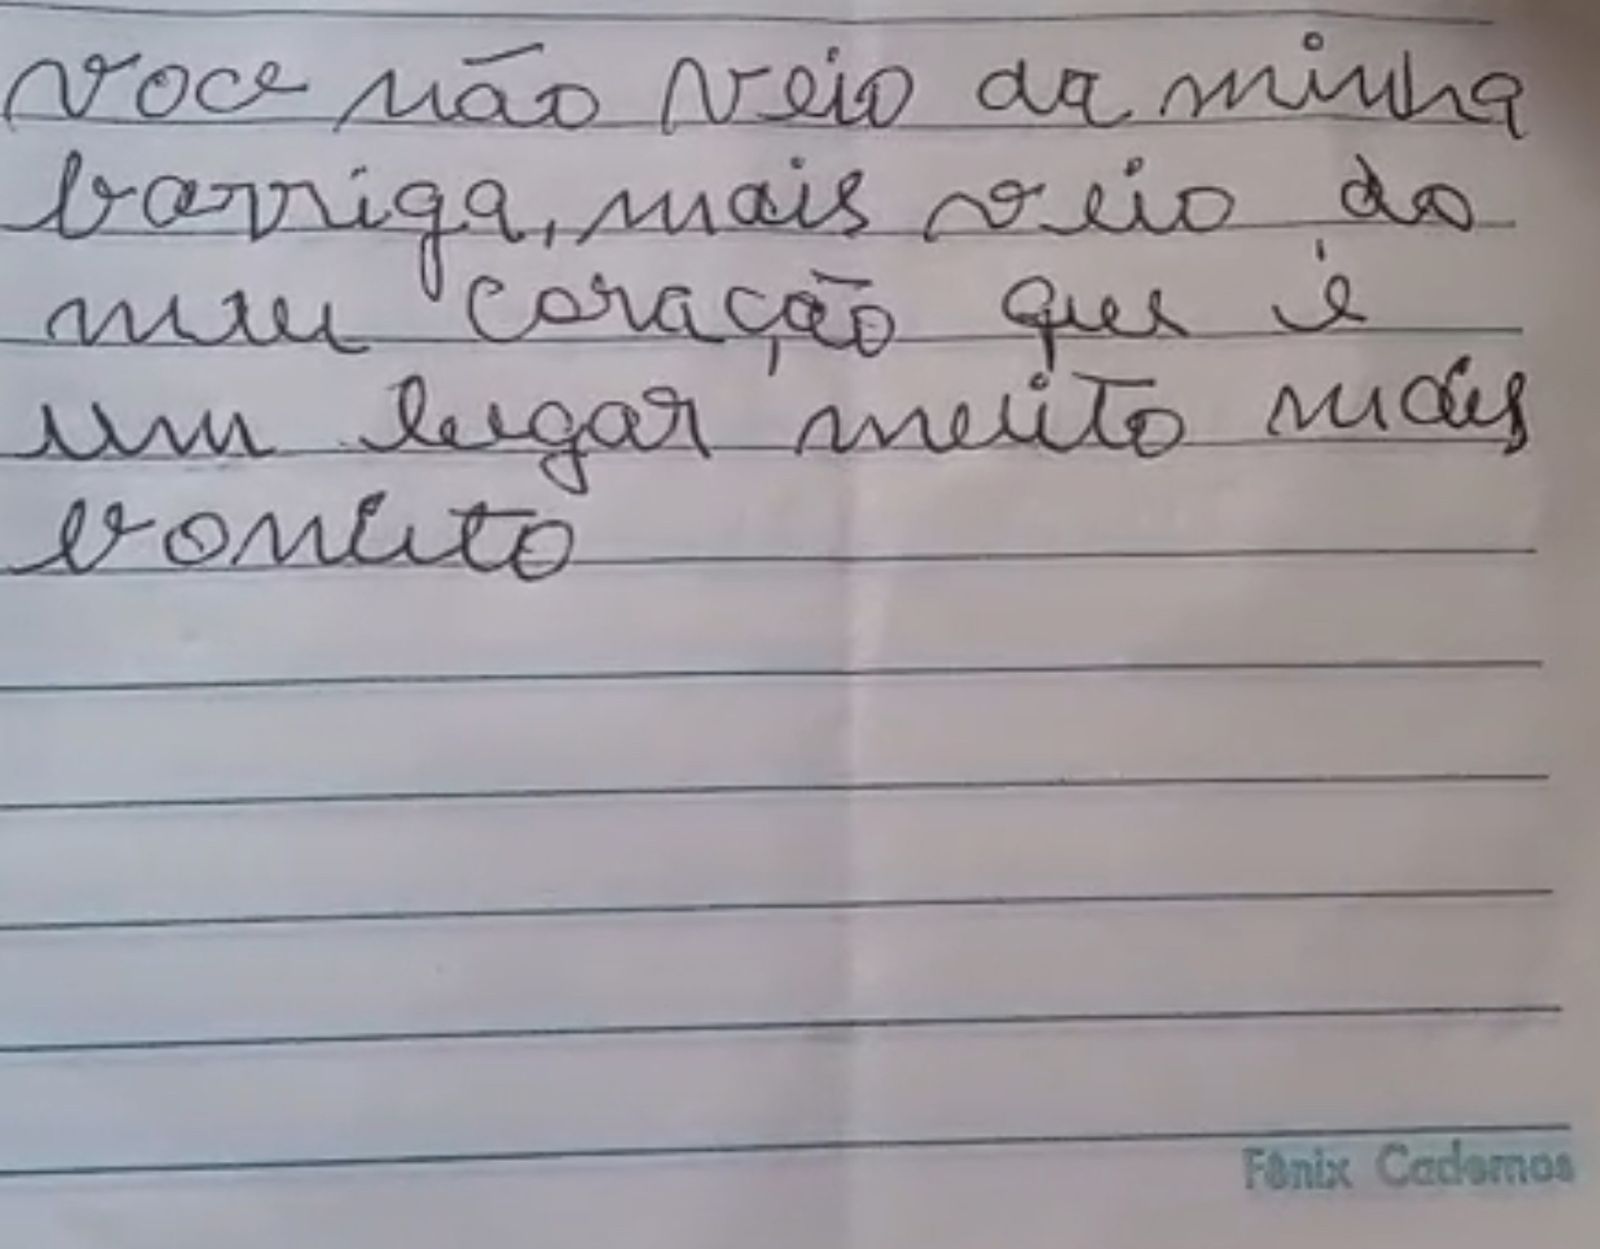 voce não veio da minha
barriga, mais veio do
meu coração que é
um lugar muito mais
bonito
Fênix Cadernos